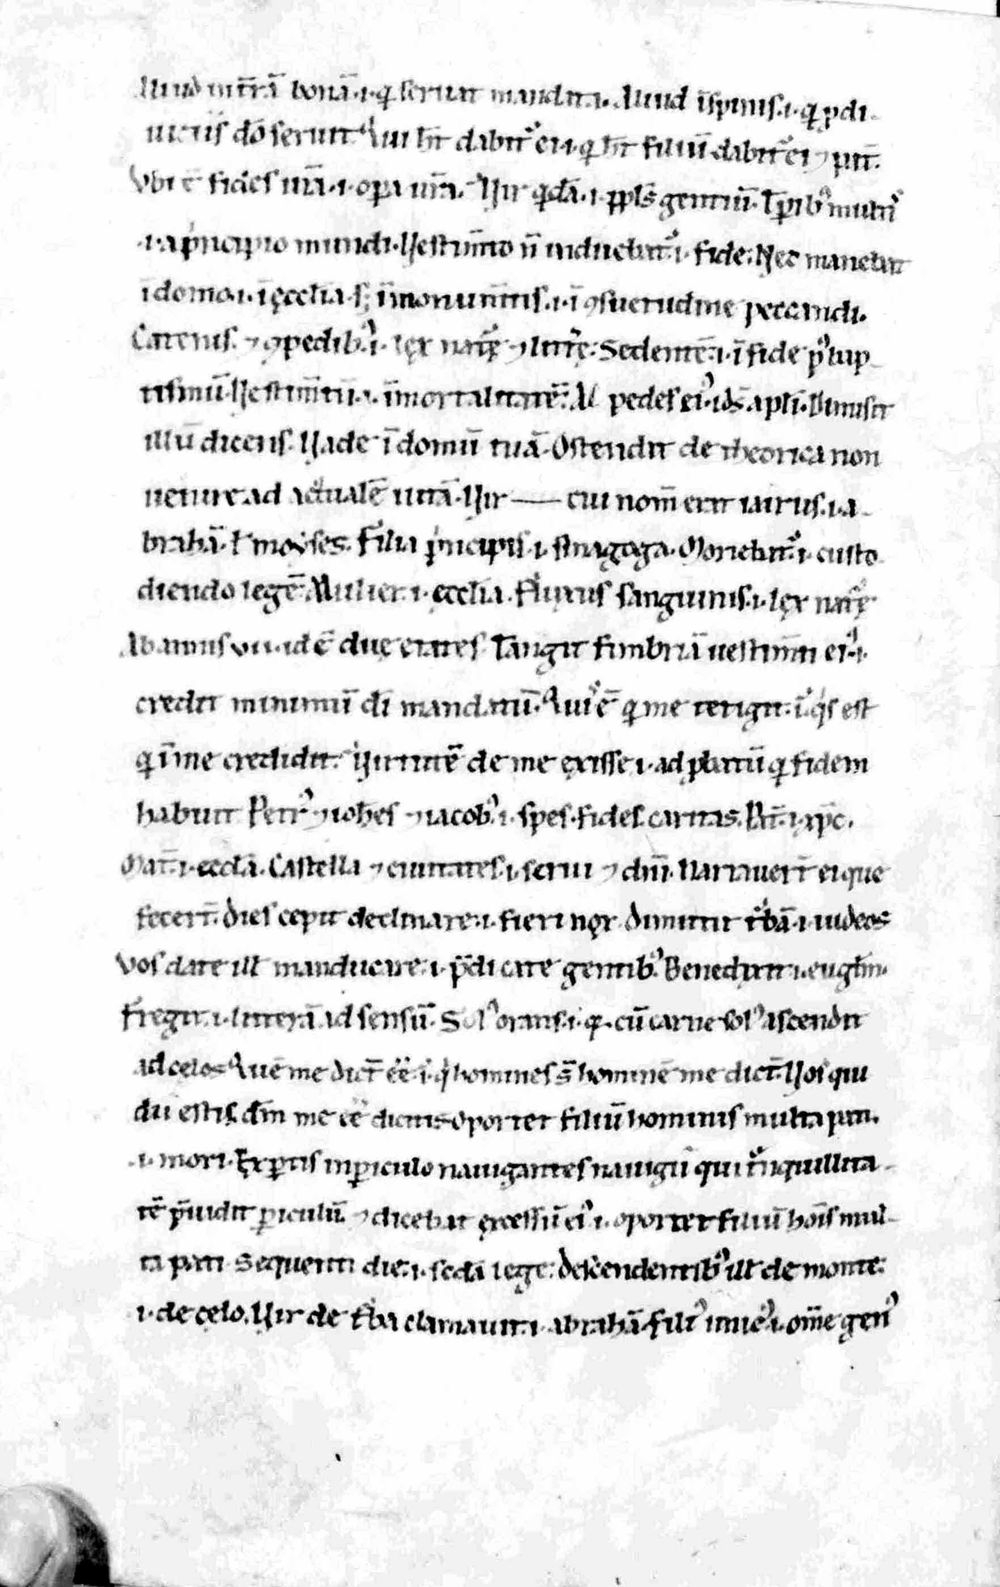 Aliud int̄rā bonā·i·q̄ seruat mandata. Aliud ī spinis·i·q̄ ꝓdi-
uiciis dō seruit Qui hт̄ dabit᷑ ei·i·q̄ hт̄ filiū dabit᷑ ei ⁊ pat̄.
Vbi ē fides urā·i·oꝑa urā. Vir q̄dā·i·ppłs gentiū. Tēꝑib᷒ multis
·i·a principio mundi. Vestim̄to n̄ induebat᷑·i· fide. Nec manebat
ī domo·i·ī ęcclīa·s; ī monum̄tis·i·ī ꝯsuetudine peccandi.
Catenis ⁊ ꝯpedib᷒·i· lex natur̄ę ⁊ litt̄ę. Sedentē·i·ī fide p᷒ bap-
tismū. Vestim̄tū·i· īmortalitatē. Ad pedes ei᷒·i·dn̄s apłi. Dimisit
illū dicens. Vade ī domū tuā. Ostendit de theorica non
uenire ad actualē uitā. Vir — cui nom̄ erat iairus·i·a-
brahā ł moyses. Filia principis·i· sinagoga. Moriebat᷑·i· custo
diendo legē. Mulier·i·ecclīa. Fluxus sanguinis·i·lex natur̄ę
Ab annis xii·id ē duę etates Tangit fimbriā uestim̄ti ei᷒·i·
credit minimū di mandatū. Quis ē qui me tetigit·i·q̄s est
q̄ ī me credidit. Virtutē de me exisse·i·ad p̄latū q̄ fidem
habuit Petr᷒ ⁊ iohēs ⁊ iacob᷒·i· spes·fides caritas. Pat̄·i·xp̄c.
Mat̄·i·ecclā. Castella ⁊ ciuitates·i·serui ⁊ dn̄i. Narrauer̄t ei que
fecer̄t. dies cepit declinare·i· fieri nox dimittit t᷑bā·i·iudeos
Vos date illł manducare·i·p̄dicate gentib᷒. Benedixit·i·eugłm.
Fregit·i·litterā ad sensū. Sol᷒ orans·i·q̄ cū carne sol᷒ ascendit
ad celos Quē me dic̄t ēē·i·q̄ homines s̄ hominē me dic̄t. Vos qui
dii estis dm̄ me ēē dicitis Oportet filiū hominis multa pati.
·i·mori. Exꝑtis in ꝑiculo nauigantes nauigii qui t̄nquillita-
tē p̄uidit ꝑiculū ⁊ dicebat excessū ei᷒·i· oportet filiū hōis mul-
ta pati Sequenti die·i·sc̄dā lege. Descendentib᷒ illł de monte.
·i·de celo. Vir de t᷑ba clamauit·i·abrahā·fili᷒ unic᷒·i·om̄e gen᷒